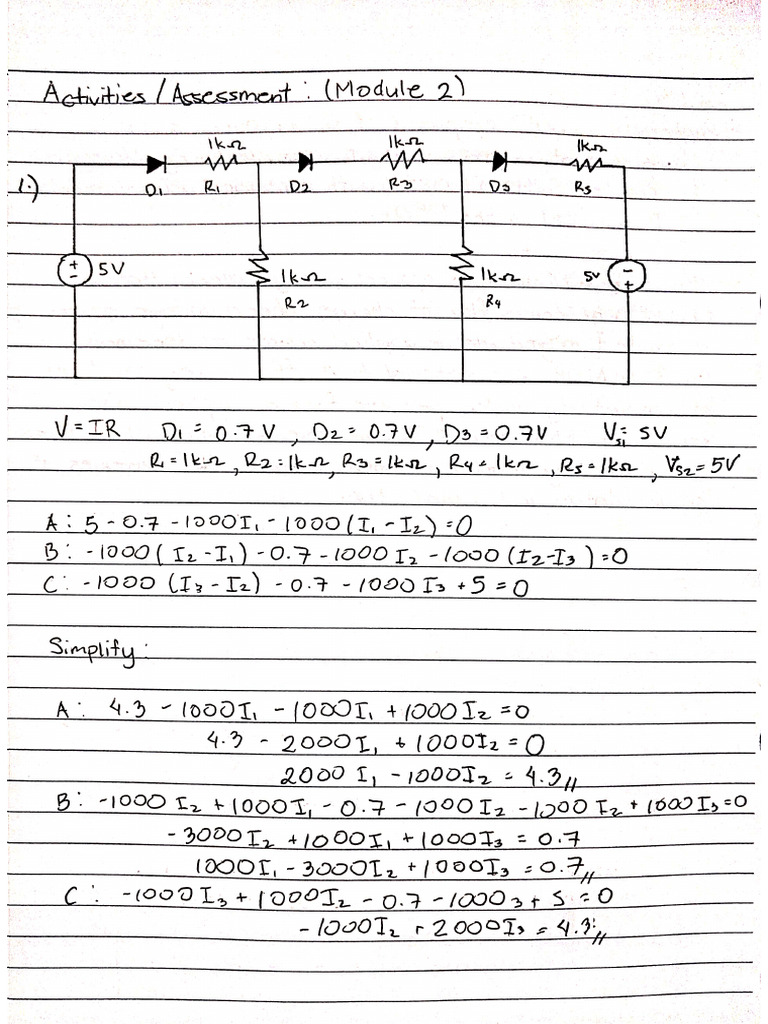 Activities / Assessment : (Module 2)
1kΩ 1kΩ 1kΩ
1.) D1 R1 D2 R3 D3 R5
+ - 5V 1kΩ 1kΩ 5V - +
R2 R4
V = IR D1 = 0.7V , D2 = 0.7V , D3 = 0.7V Vs1 = 5V
R1 = 1kΩ , R2 = 1kΩ , R3 = 1kΩ , R4 = 1kΩ , R5 = 1kΩ , Vs2 = 5V
A : 5 - 0.7 - 1000I1 - 1000 (I1 - I2) = 0
B : -1000 (I2 - I1) - 0.7 - 1000 I2 - 1000 (I2 - I3) = 0
C : -1000 (I3 - I2) - 0.7 - 1000 I3 + 5 = 0
Simplify :
A : 4.3 - 1000I1 - 1000I1 + 1000I2 = 0
4.3 - 2000I1 + 1000I2 = 0
2000 I1 - 1000I2 = 4.3 //
B : -1000 I2 + 1000I1 - 0.7 - 1000 I2 - 1000 I2 + 1000 I3 = 0
-3000I2 + 1000I1 + 1000I3 = 0.7
1000I1 - 3000I2 + 1000I3 = 0.7 //
C : -1000I3 + 1000I2 - 0.7 - 1000 3 + 5 = 0
-1000I2 + 2000I3 = 4.3 //